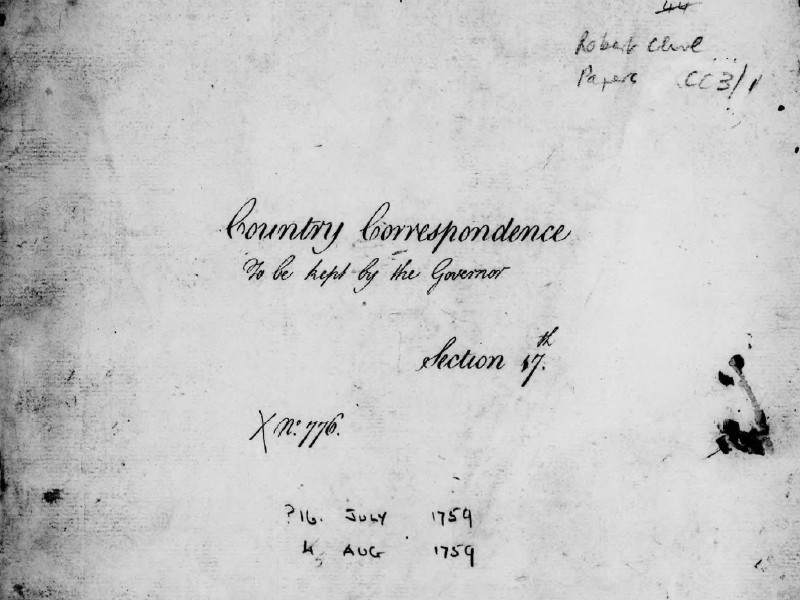 44
Robert Clive
Papers CC3/1
Country Correspondence
To be kept by the Governor
Section 17th.
X No. 776.
?16. JULY 1759
4 AUG 1759